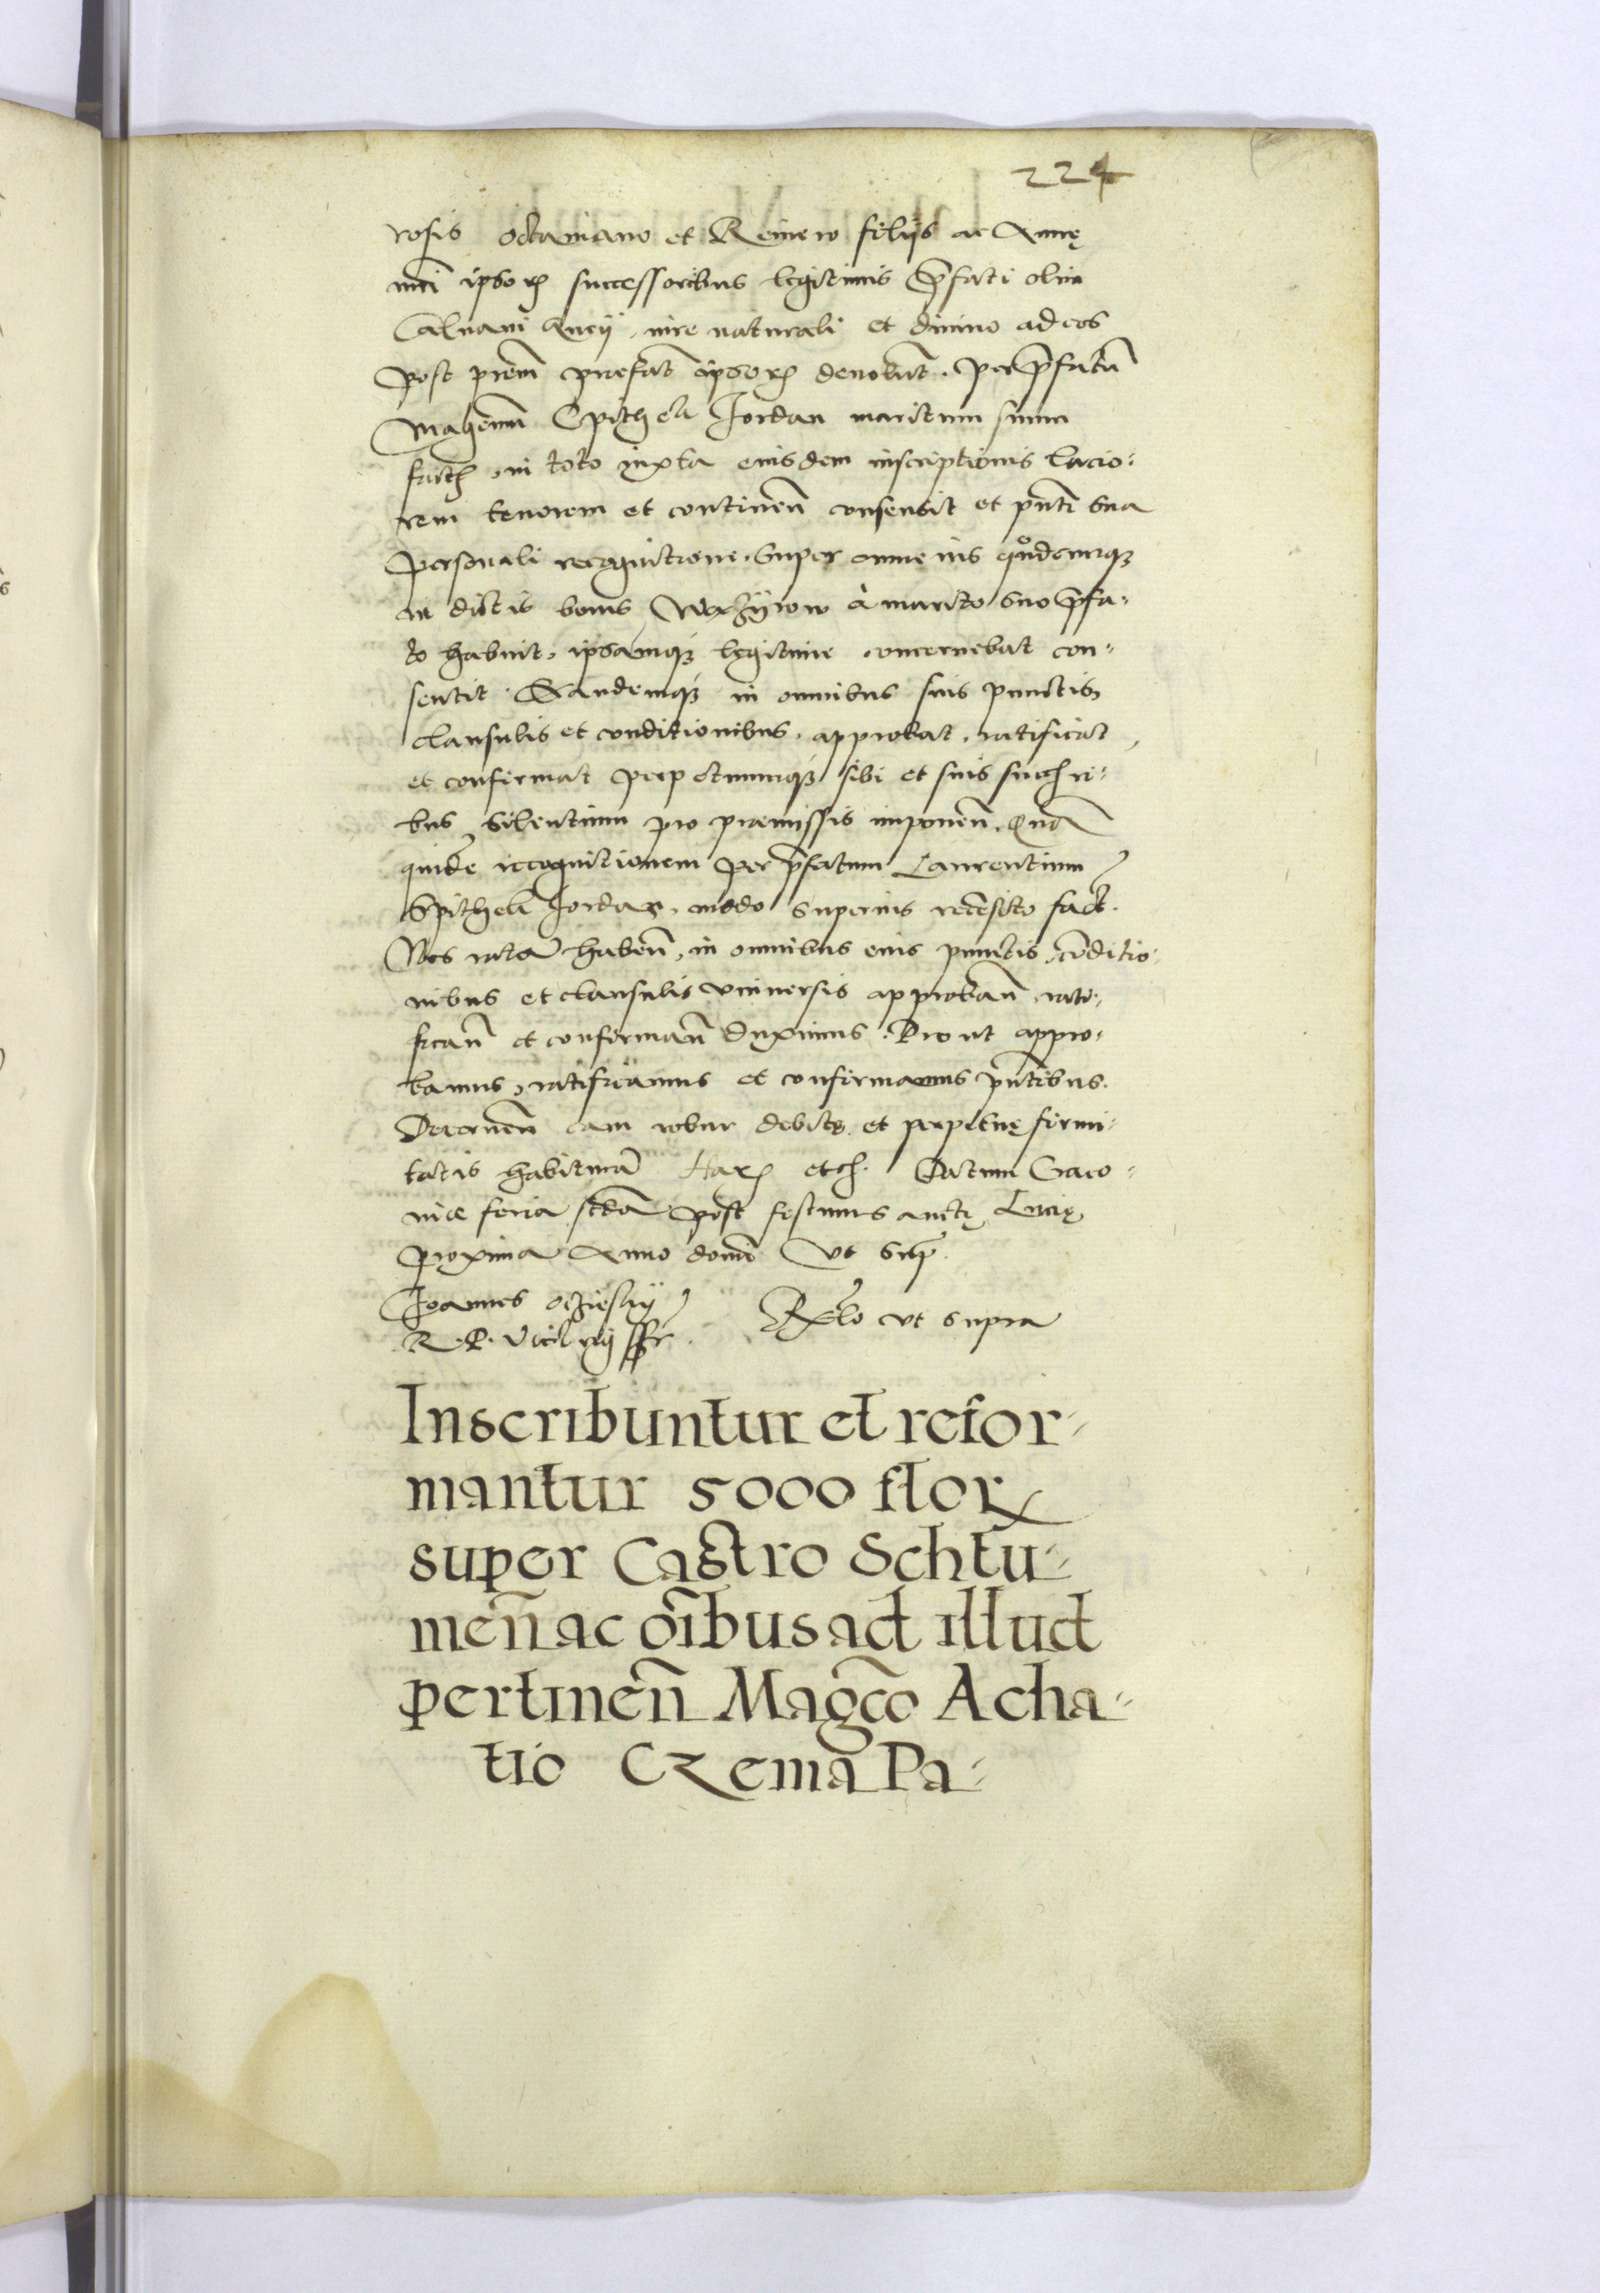 224
rosis Octaviano et Reinero filijs ac Annę
mri ipsorꝫ successoribus legitimis p̃fati olim
Calvani Gucij, iure naturali et divino ad eos
post prem̃ prefat̃ ipsorꝫ devolut̃. Per p̃fatũ
Magcum̃ Spithek Jordan maritum suum
factꝫ, in toto juxta eiusdem inscriptionis lacio-
rem tenorem et continen̄ consensit et pn̄ti sua
personali recognitione. Super omne ius quodcunqꝫ
in dictis bonis à marito suo p̃fa-
to habuit, ipsamqꝫ legitime concernebat con-
sentit. Eandemqꝫ in omnibus suis punctis
clausulis et conditionibus, approbat, ratificat,
et confirmat perpetuumqꝫ sibi et suis succꝫri-
bus silentium pro premissis imponen̄. Quā
quidē recognitionem per p̃fatum Laurentium
Spithek Jordan, modo superius recēsito fact̃.
Nos ratā haben̄, in omnibus eius punctis, cōditio-
nibus et clausulis universis approban̄ rati-
fican̄ et confirman̄ duximus. Prout appro-
bamus, ratificamus et confirmamus pn̄tibus.
Decernen̄ eam robur debitę et perpetuę firmi-
tatis habiturā Harꝫ etcꝫ. Datum Craco-
viæ feria scdā post festum sanctę Lucię
proxima Anno domī ut supᵃ.
Joannes Oczieski
R. P. Vicecancellarij sst.
Relo ut supra
Inscribuntur et refor-
mantur 5000 florꝫ
super Castro Schtu-
men̄ ac oībus ad illud
pertinēn Magco Acha-
tio Czema Pa-